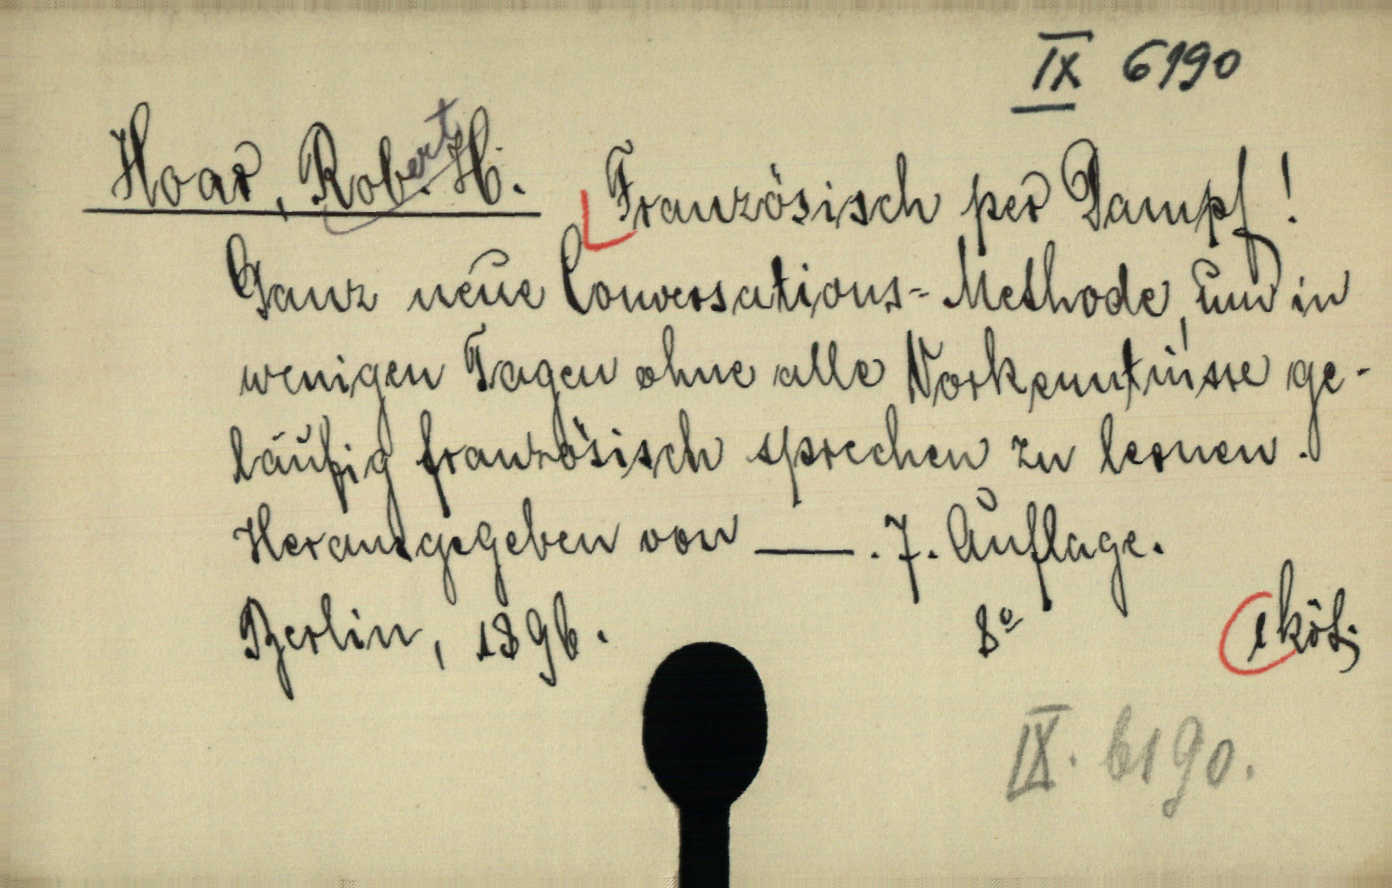 IX 6190
Hoar, Robert H. Französisch per Dampf!
Ganz neue Conversations-Methode, um in
wenigen Tagen ohne alle Vorkenntnisse ge-
läufig französisch sprechen zu lernen.
Herausgegeben von ——. 7. Auflage.
Berlin, 1896. 8° 1 köt.
IX. 6190.